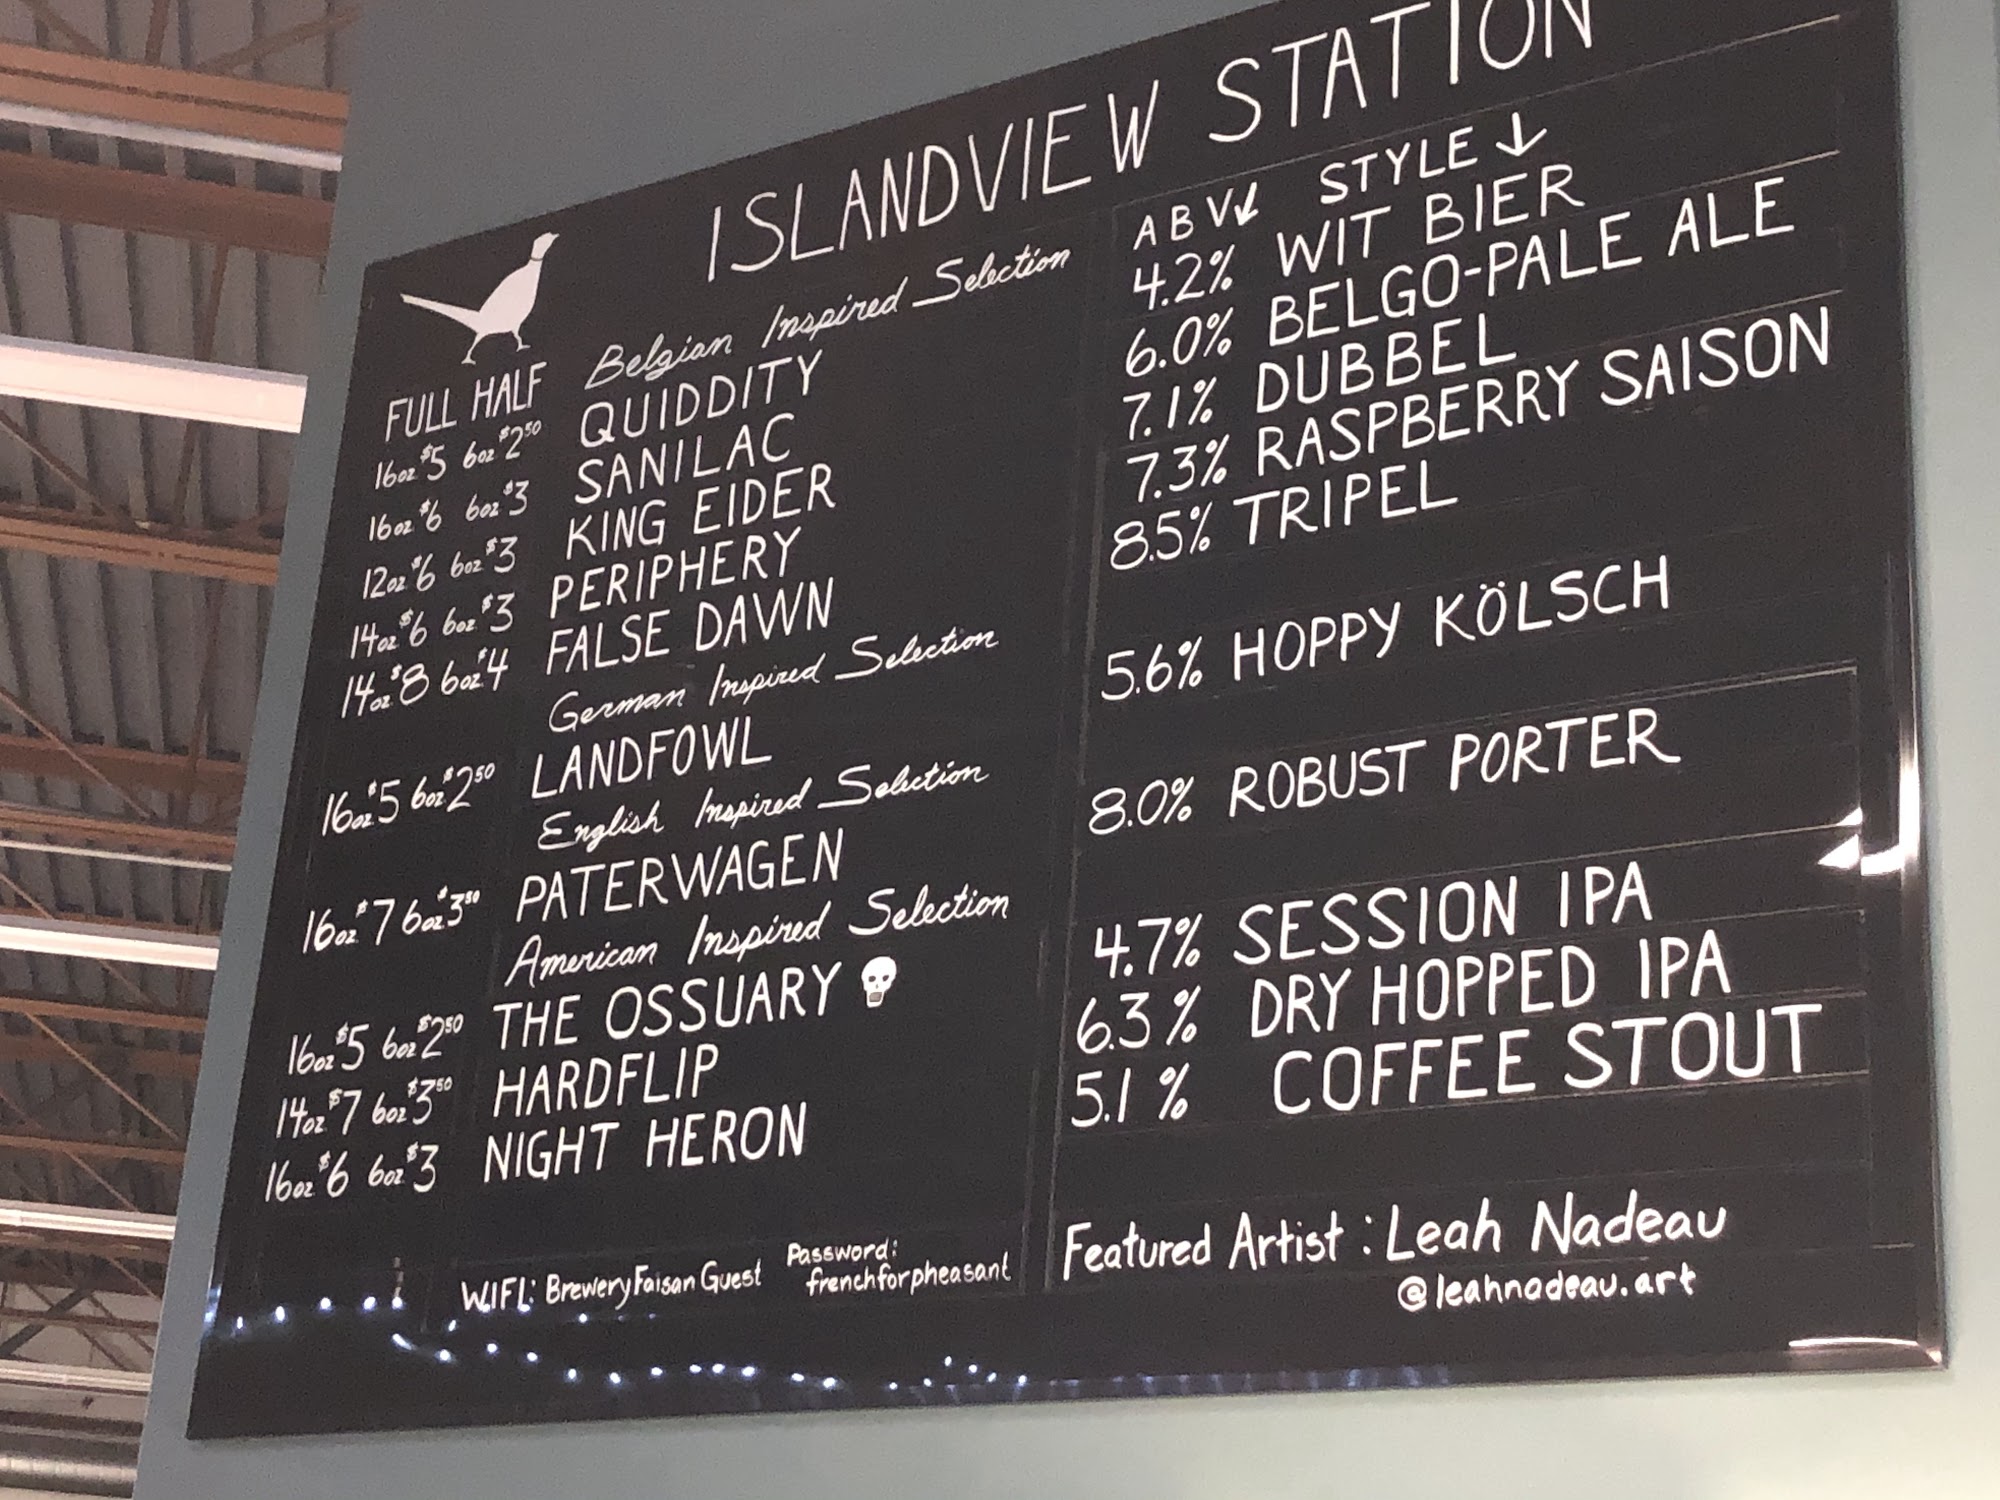 ISLANDVIEW STATION
FULL HALF Belgian Inspired Selection ABV↙ STYLE↓
16oz $5 6oz $2⁵⁰ QUIDDITY 4.2% WIT BIER
16oz $6 6oz $3 SANILAC 6.0% BELGO-PALE ALE
12oz $6 6oz $3 KING EIDER 7.1% DUBBEL
14oz $6 6oz $3 PERIPHERY 7.3% RASPBERRY SAISON
14oz $8 6oz $4 FALSE DAWN 8.5% TRIPEL
German Inspired Selection
16oz $5 6oz $2⁵⁰ LANDFOWL 5.6% HOPPY KÖLSCH
English Inspired Selection
16oz $7 6oz $3⁵⁰ PATERWAGEN 8.0% ROBUST PORTER
American Inspired Selection
16oz $5 6oz $2⁵⁰ THE OSSUARY 4.7% SESSION IPA
14oz $7 6oz $3⁵⁰ HARDFLIP 6.3% DRY HOPPED IPA
16oz $6 6oz $3 NIGHT HERON 5.1% COFFEE STOUT
WIFI: BreweryFaisanGuest Password: frenchforpheasant
Featured Artist: Leah Nadeau
@leahnadeau.art